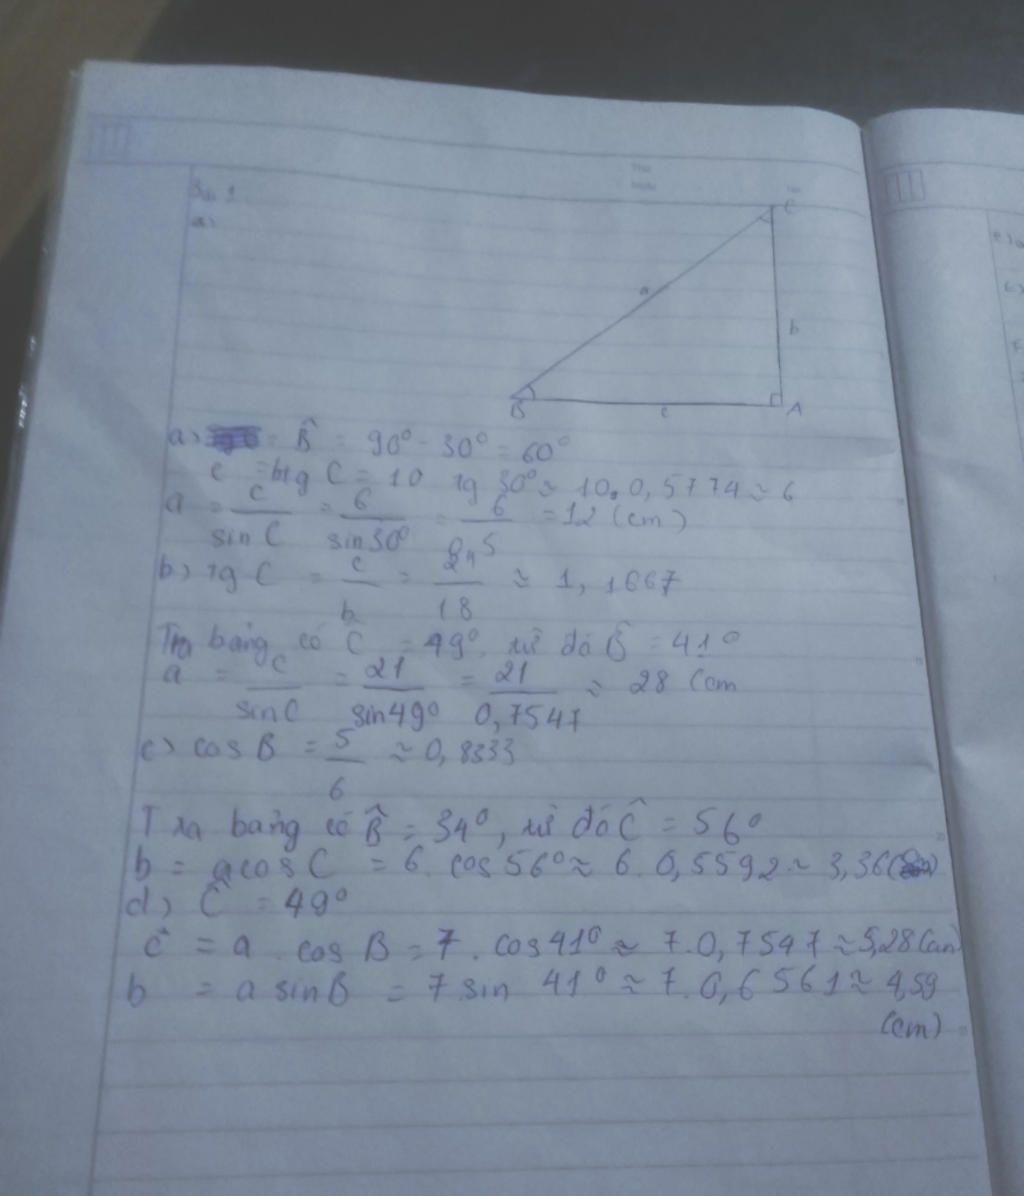 Bài 1
a)
C
a
b
B
c
A
a) = B̂ = 90° - 30° = 60°
c = btg C = 10 tg 30° ≈ 10.0,5774 ≈ 6
a = c/sin C = 6/sin30° = 6/0,5 = 12 (cm)
b) tg C = c/b = 21/18 ≈ 1,1667
Tra bảng có Ĉ = 49°, từ đó B̂ = 41°
a = c/sinC = 21/sin49° = 21/0,7547 ≈ 28 (cm
c) cos B = 5/6 ≈ 0,8333
Tra bảng có B̂ = 34°, từ đó Ĉ = 56°
b = acosC = 6. cos56° ≈ 6.0,5592 ≈ 3,36(
d) Ĉ = 49°
c = a . cos B = 7. cos41° ≈ 7.0,7547 ≈ 5,28 (cm)
b = a sinB = 7 sin 41° ≈ 7.0,6561 ≈ 4,59
(cm)